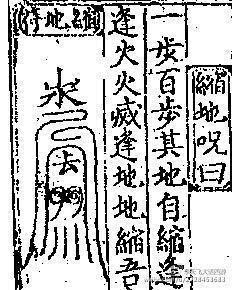 縮地呪曰
一步百步其地自縮逢
逢火火滅逢地地縮吾
縮地符
去